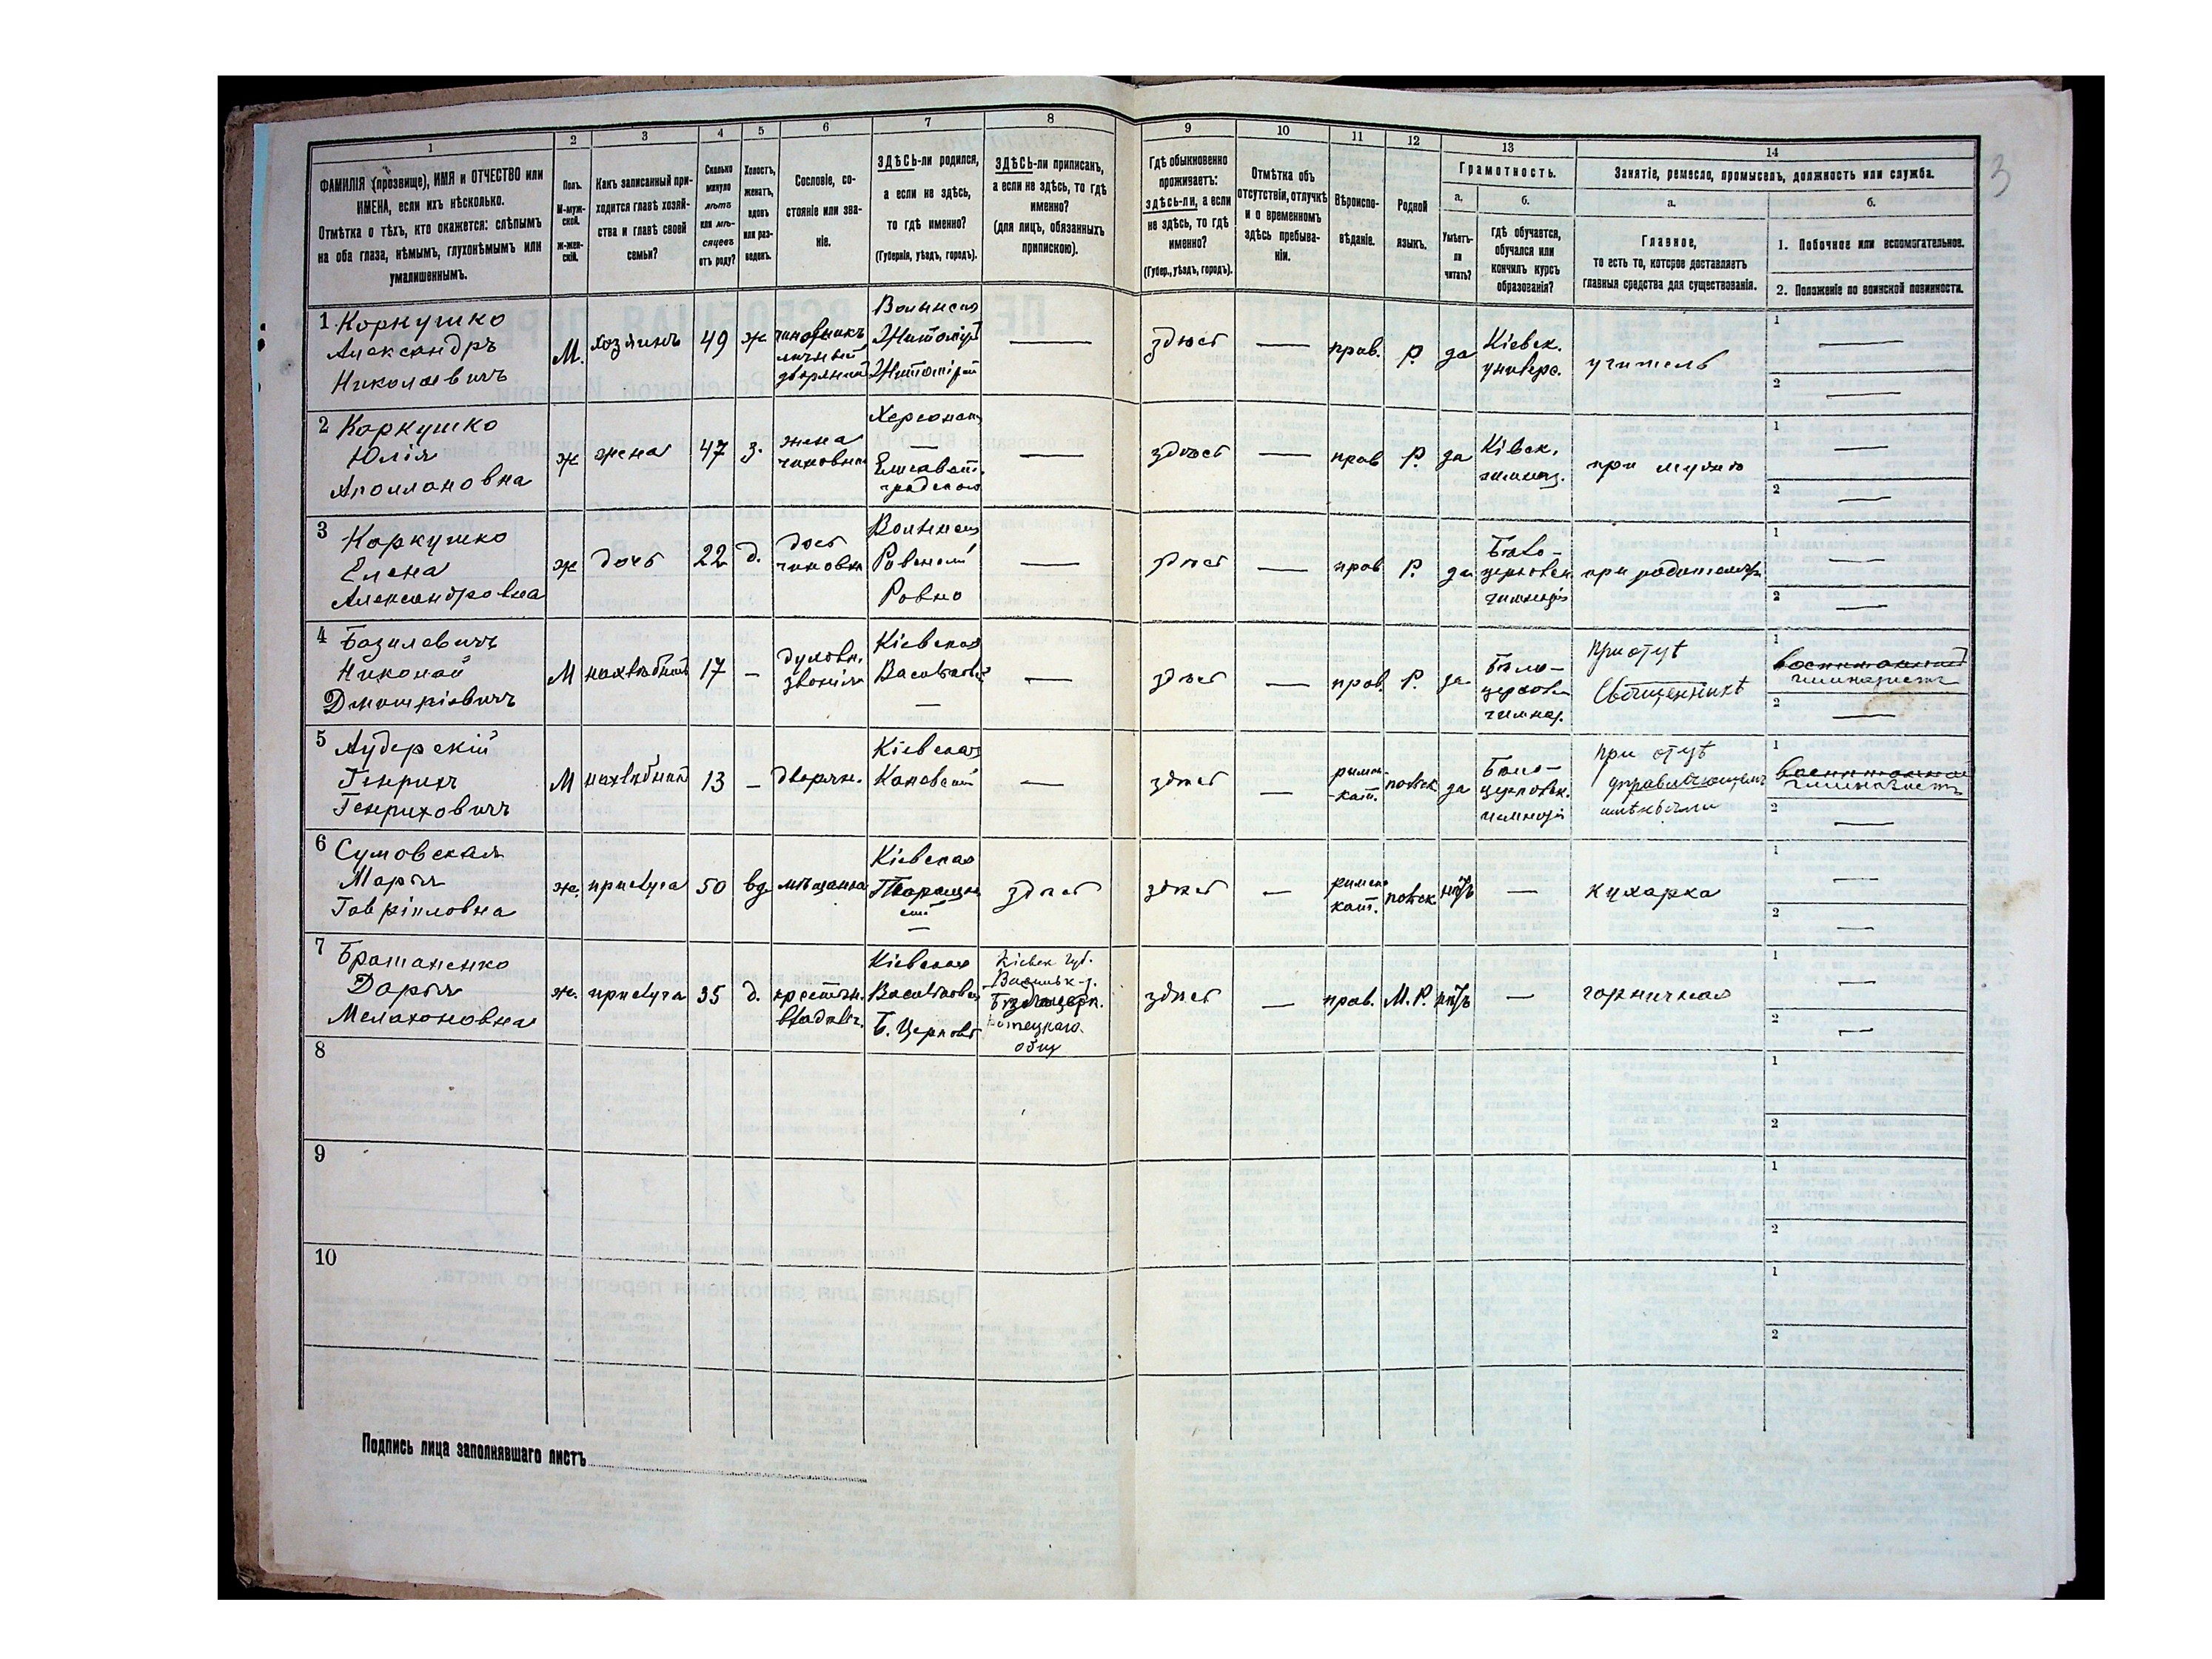 3
1 2 3 4 5 6 7 8 9 10 11 12 13 14
ФАМИЛІЯ (прозвище), ИМЯ и ОТЧЕСТВО или
ИМЕНА, если ихъ нѣсколько.
Отмѣтка о тѣхъ, кто окажется: слѣпымъ
на оба глаза, нѣмымъ, глухонѣмымъ или
умалишеннымъ.
Полъ.
М-муж-
ской.
Ж-жен-
скій.
Какъ записанный при-
ходится главѣ хозяй-
ства и главѣ своей
семьи?
Сколько
минуло
лѣтъ
или мѣ-
сяцевъ
отъ роду?
Холостъ,
женатъ,
вдовъ
или раз-
веденъ.
Сословіе, со-
стояніе или зва-
ніе.
ЗДѢСЬ-ли родился,
а если не здѣсь,
то гдѣ именно?
(Губернія, уѣздъ, городъ).
ЗДѢСЬ-ли приписанъ,
а если не здѣсь, то гдѣ
именно?
(для лицъ, обязанныхъ
припискою).
Гдѣ обыкновенно
проживаетъ:
здѣсь-ли, а если
не здѣсь, то гдѣ
именно?
(Губер., уѣздъ, городъ).
Отмѣтка объ
отсутствіи, отлучкѣ
и о временномъ
здѣсь пребыва-
ніи.
Вѣроиспо-
вѣданіе.
Родной
языкъ.
Грамотность.
а.
Умѣетъ-
ли
читать?
б.
Гдѣ обучается,
обучался или
кончилъ курсъ
образованія?
Занятіе, ремесло, промыселъ, должность или служба.
а.
Главное,
то есть то, которое доставляетъ
главныя средства для существованія.
б.
1. Побочное или вспомогательное.
2. Положеніе по воинской повинности.
1 Коркушко
Александръ
Николаевичъ
М.
хозяинъ
49
ж
чиновникъ
личный
дворянин
Волынская
Житомір
Житомірский
—
здѣсь
—
прав.
Р.
да
Кіевск.
универс.
учитель
1 —
2 —
2 Коркушко
Юлія
Аполлоновна
ж
жена
47
з.
жена
чиновник
Херсонск
—
Елисавет-
градского
—
здѣсь
—
прав
Р.
да
Кіевск.
гимназ.
при мужѣ
1 —
2 —
3 Коркушко
Елена
Александровна
ж
дочь
22
д.
дочь
чиновн
Волынская
Ровенский
Ровно
—
здѣсь
—
прав
Р.
да
Бѣло-
церковск
гимназія
при родителяхъ
1 —
2 —
4 Базилевичъ
Николай
Дмитріевичъ
М
нахлѣбникъ
17
–
духовн.
званія
Кіевская
Васильковс
—
—
здѣсь
—
прав.
Р.
да
Бѣло-
церковск
гимназ.
При отцѣ
Священникѣ
1
гимназистъ
2 —
5 Аудерскій
Генрихъ
Генриховичъ
М
нахлѣбникъ
13
–
дворян.
Кіевская
Каневский
—
здѣсь
—
римск-
-кат.
польск
да
Бѣло-
церковск.
гимназія
при отцѣ
управляющемъ
имѣніями
1
гимназистъ
2 —
6 Сумовская
Марья
Гавріиловна
ж.
прислуга
50
вд
мѣщанка
Кіевская
Таращан
ский
—
здѣсь
здѣсь
—
римско
кат.
польск
нѣтъ
—
кухарка
1 —
2 —
7 Братаненко
Дарья
Мелахоновна
ж.
прислуга
35
д.
крестьян.
владѣльч.
Кіевская
Васильковск
Б. Церковь
Кіевск губ.
Васильк-у.
общ
здѣсь
—
прав.
М. Р.
нѣтъ
—
горничная
1 —
2 —
8
1
2
9
1
2
10
1
2
Подпись лица заполнявшаго листъ